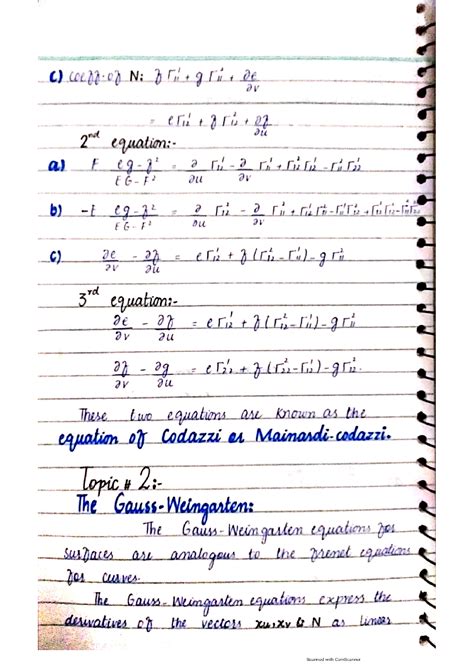 c) coeff. of N: f Γ₁₁¹ + g Γ₁₁² + ∂e/∂v
= e Γ₁₂¹ + f Γ₁₂² + ∂f/∂u
2nd equation:-
a) F (eg - f²)/(EG - F²) = ∂/∂u Γ₁₂¹ - ∂/∂v Γ₁₁¹ + Γ₁₂² Γ₁₂¹ - Γ₁₁² Γ₂₂¹
b) -E (eg - f²)/(EG - F²) = ∂/∂u Γ₁₂² - ∂/∂v Γ₁₁² +
c) ∂e/∂v - ∂f/∂u = e Γ₁₂¹ + f (Γ₁₂² - Γ₁₁¹) - g Γ₁₁²
3rd equation:-
∂e/∂v - ∂f/∂u = e Γ₁₂¹ + f (Γ₁₂² - Γ₁₁¹) - g Γ₁₁²
∂f/∂v - ∂g/∂u = e Γ₂₂¹ + f (Γ₂₂² - Γ₁₂¹) - g Γ₁₂².
These two equations are known as the
equation of Codazzi or Mainardi-codazzi.
Topic # 2:-
The Gauss-Weingarten:
The Gauss-Weingarten equations for
surfaces are analogous to the frenet equations
for curves.
The Gauss-Weingarten equations express the
derivatives of the vectors xu, xv & N as linear
Scanned with CamScanner